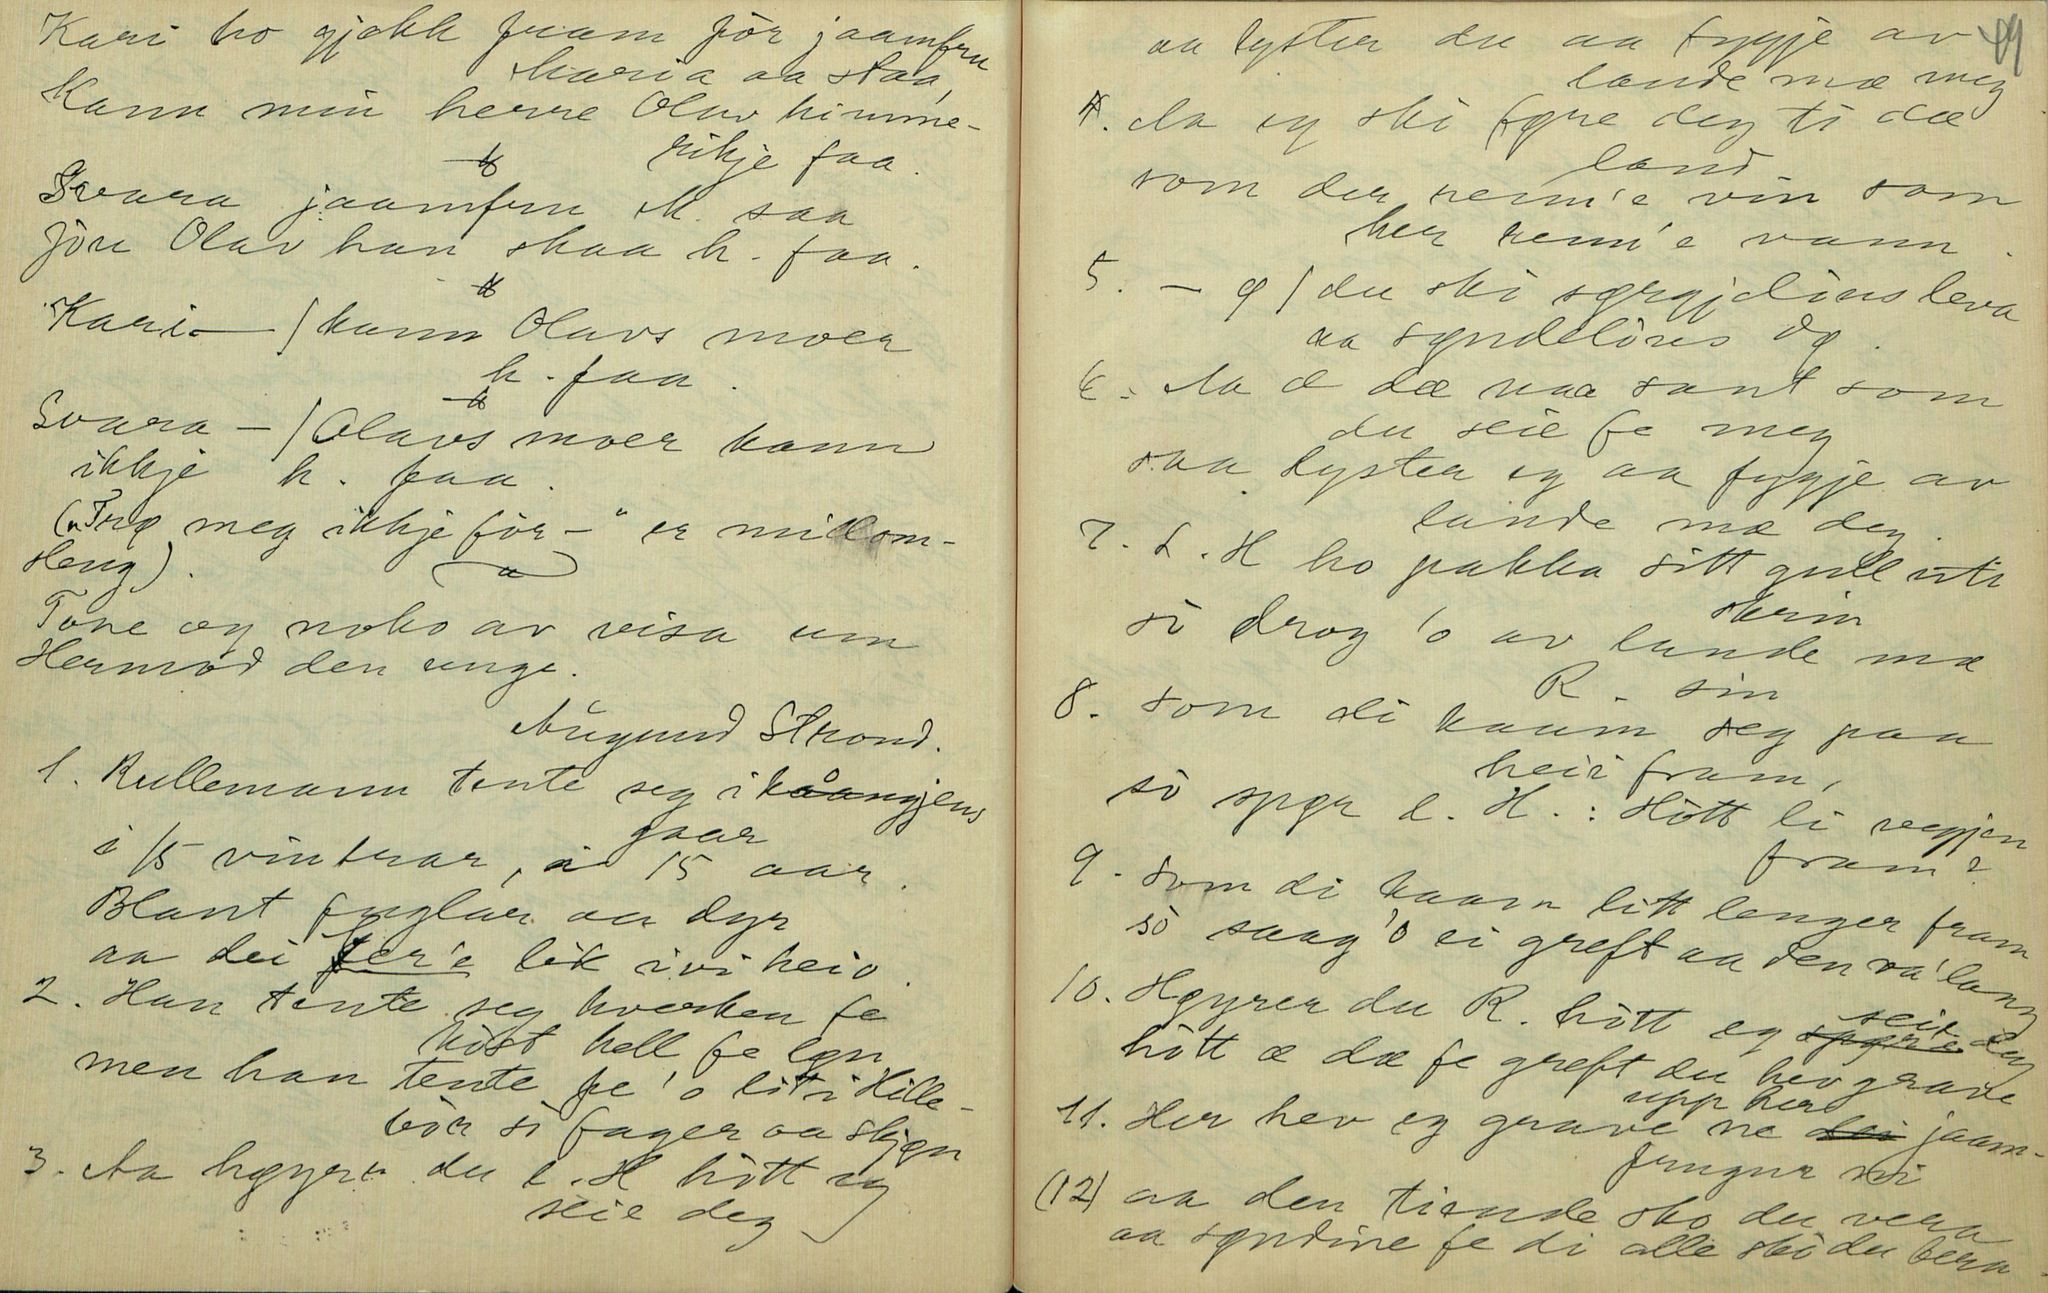 Kari ho gjekk fram för jaamfru
Maria aa staa,
Kann min herre Olav himme-
rikje faa.
Svara jaamfru M. saa
jöu Olav han skaa h. faa.
Kari — / kann Olavs moer
h. faa.
Svara — / Olavs moer kann
ikkje h. faa.
("Trø meg ikkje för —" er millom-
steng).
Tone og noko av visa um
Hermod den unge.
Aùgund Strond.
1. Rullemann tente seg i kaangjens
gaar
i 15 vintrar, i 15 aar.
Blant fuglar aa dyr
aa dei fer'e lik ivi heio.
2. Han tente seg hverken fe
köst hell fe løn
men han tente fe 'o liti Hille-
bör si fager aa skjøn
3. Aa høyrer du l. H hött eg
seie deg
49
aa lyster du aa fygje av
lande mæ meg
4. Aa eg ski føre deg ti dæ
land
som der renn'e vin som
her renn'e vann.
5. — ø / du ski sørgjelius leva
aa syndelöus dø.
6. Aa æ dæ naa sant som
du seie fe meg
saa lyster eg aa fygje av
lande mæ deg.
7. L. H ho pakka sitt gull uti
skrin
sö drog 'o av lande mæ
R. sin
8. Som di kaam seg paa
heii fram,
sö spør l. H.: Hött li vegjen
fram?
9. Som di kaam litt lenger fram
sö saag 'o ei greft aa den va' lang
10. Høyrer du R. hött eg seie deg
hött æ dæ fe greft du hev grave
upp her
11. Her hev eg grave ne jaam-
frugur ni
(12) aa den tiende sko du vera
aa syndine fe di alle skö du bera.